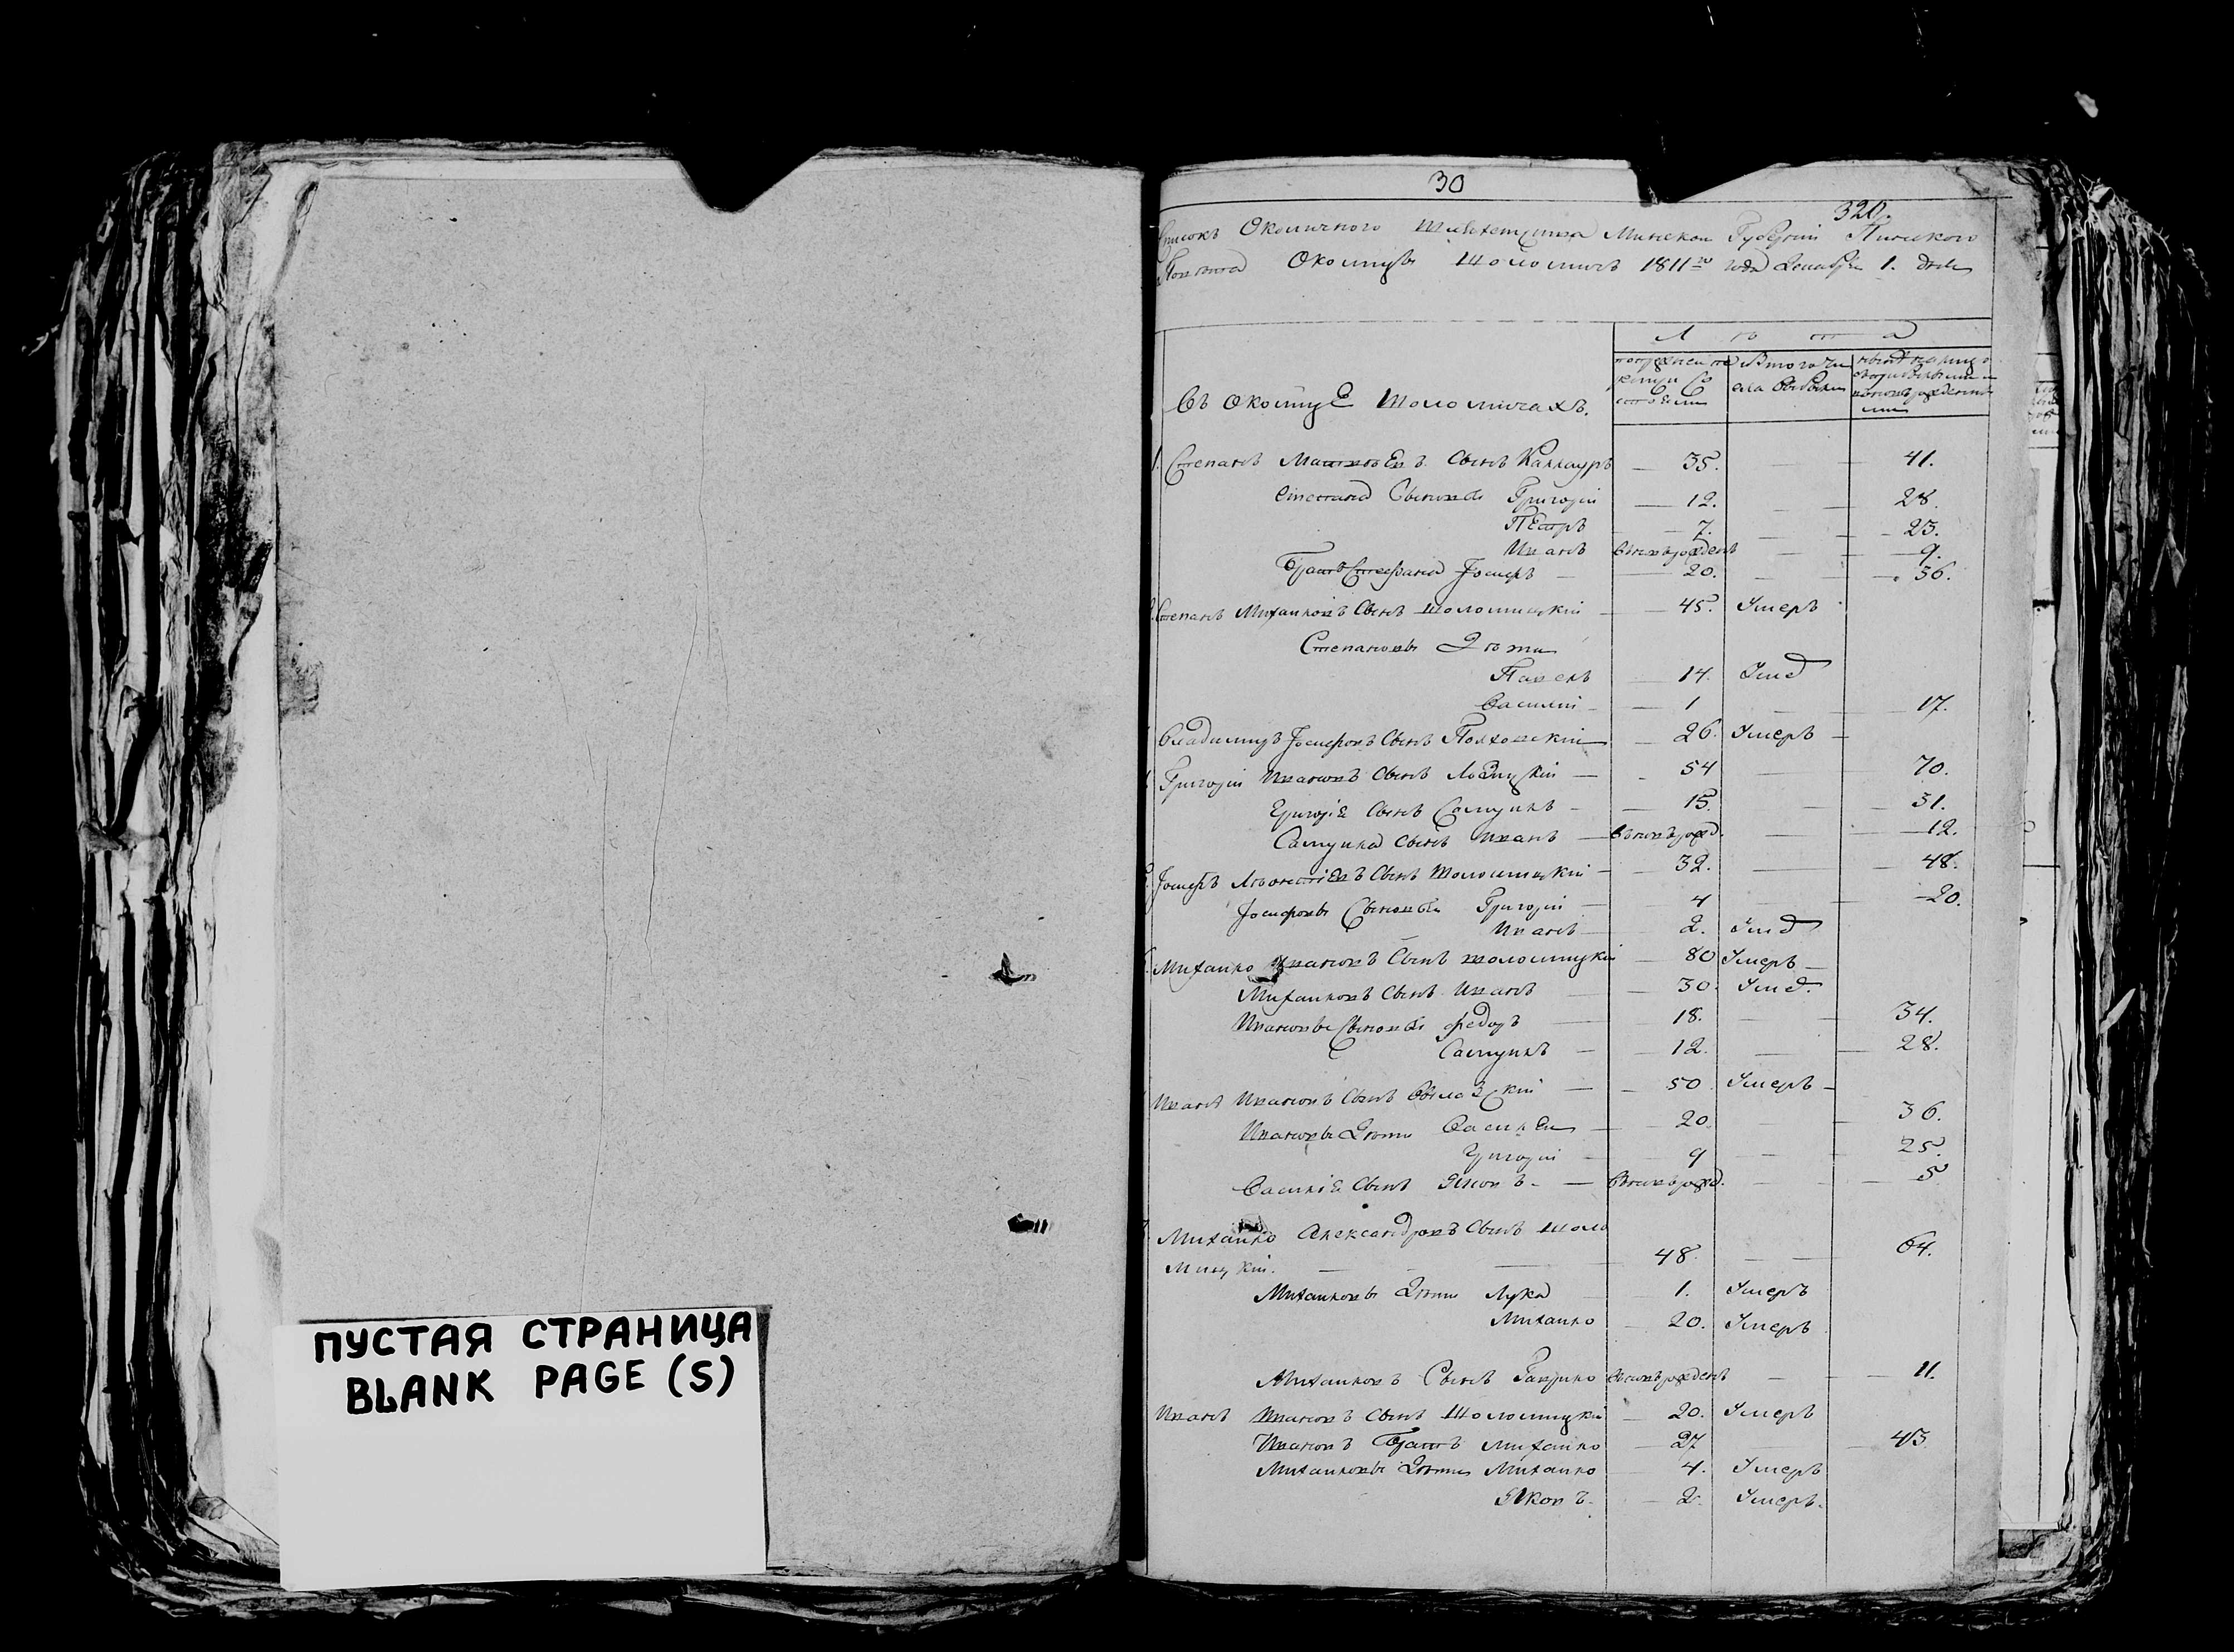 30
320.
Списокъ Околичного Шляхетства Минской Губерніи Пинского
Повета Околицы Шоломичъ 1811го года Декабря 1. дня
Лета
Въ Околице Шоломичахъ.
1. Степанъ Матвеевъ Сынъ Каллауръ — 35. — 41.
Степана Сыновья Григорій — 12. — 28.
Петръ — 7. — 23.
Иванъ вновьрожденъ — 9.
Братъ Стефана Іосифъ — 20. — 36.
Степанъ Михайловъ Сынъ Шоломицкій — 45. Умеръ
Степановы Дети
Павелъ — 14. Уме
Василій — 1 — 17.
Владимиръ Іосифовъ Сынъ Полховскій — 26. Умеръ —
Григорій Ивановъ Сынъ — 54 — 70.
Григоріе Сынъ Самуилъ — 15. — 31.
Самуила Сынъ Иванъ — вновьрожд. — 12.
Іосифъ Сынъ Шоломицкій — 32. — 48.
Іосифовы Сыновья Григорій — 4 — 20.
Иванъ — 2. Уме
Михайло Ивановъ Сынъ Шоломицкій — 80 Умеръ —
Михайловъ Сынъ Иванъ — 30. Уме.
Ивановы Сыновья Федоръ — 18. — 34.
Самуилъ — 12. — 28.
Иванъ Ивановъ Сынъ — 50. Умеръ —
Ивановы Дети Василей — 20. — 36.
Григорій — 9 — 25.
Василіе Сынъ Яковъ — вновьрожд. — 5
Михайло Александровъ Сынъ Шоло
мицкій. — 48. — 64.
Михайловы Дети Лука 1. Умеръ
Михайло — 20. Умеръ
Михайловъ Сынъ Гаврило вновьрожденъ — 11.
Иванъ Ивановъ Сынъ Шоломицкій — 20. Умеръ
Ивановъ Братъ Михайло — 27 — 43
Михайловы Дети Михайло — 4. Умеръ
Яковъ. — 2. Умеръ.
ПУСТАЯ СТРАНИЦА
BLANK PAGE (S)